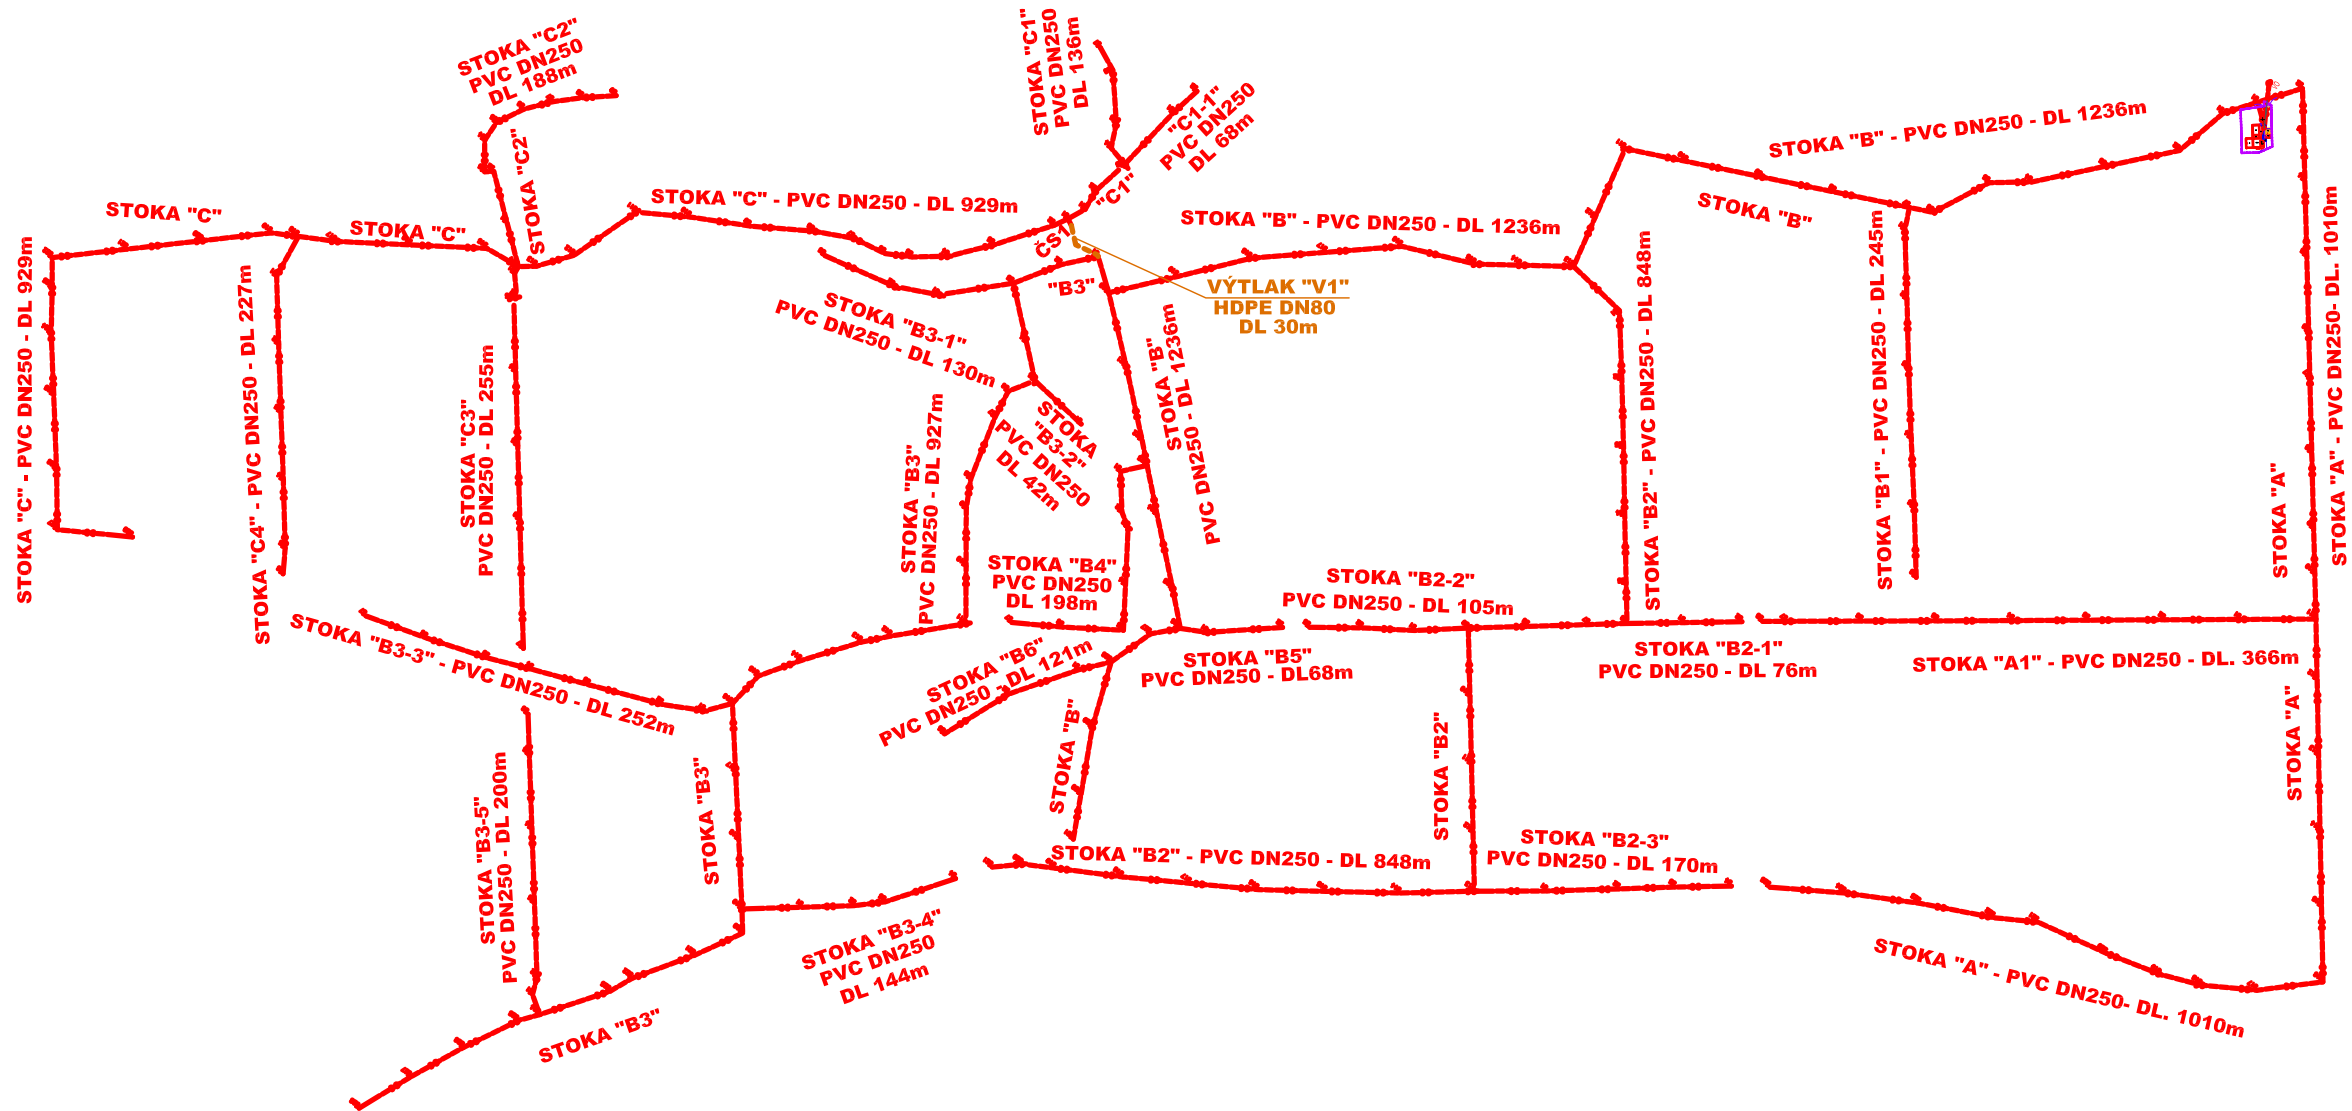 STOKA "C2"
PVC DN250
DL 188m
STOKA "C1"
PVC DN250
DL 136m
"C1-1"
PVC DN250
DL 68m
STOKA "B" - PVC DN250 - DL 1236m
STOKA "C"
STOKA "C"
STOKA "C2"
STOKA "C" - PVC DN250 - DL 929m
"C1"
ČS1
STOKA "B" - PVC DN250 - DL 1236m
STOKA "B"
STOKA "C" - PVC DN250 - DL 929m
STOKA "C4" - PVC DN250 - DL 227m
STOKA "C3"
PVC DN250 - DL 255m
"B3"
VÝTLAK "V1"
HDPE DN80
DL 30m
STOKA "B3-1"
PVC DN250 - DL 130m
STOKA "B"
PVC DN250 - DL 1236m
STOKA "B2" - PVC DN250 - DL 848m
STOKA "B1" - PVC DN250 - DL 245m
STOKA "A"
STOKA "A" - PVC DN250- DL. 1010m
STOKA "B3"
PVC DN250 - DL 927m
STOKA
"B3-2"
PVC DN250
DL 42m
STOKA "B4"
PVC DN250
DL 198m
STOKA "B2-2"
PVC DN250 - DL 105m
STOKA "B3-3" - PVC DN250 - DL 252m
STOKA "B6"
PVC DN250 - DL 121m
STOKA "B5"
PVC DN250 - DL68m
STOKA "B2-1"
PVC DN250 - DL 76m
STOKA "A1" - PVC DN250 - DL. 366m
STOKA "A"
STOKA "B3-5"
PVC DN250 - DL 200m
STOKA "B3"
STOKA "B"
STOKA "B2"
STOKA "B2" - PVC DN250 - DL 848m
STOKA "B2-3"
PVC DN250 - DL 170m
STOKA "B3-4"
PVC DN250
DL 144m
STOKA "A" - PVC DN250- DL. 1010m
STOKA "B3"